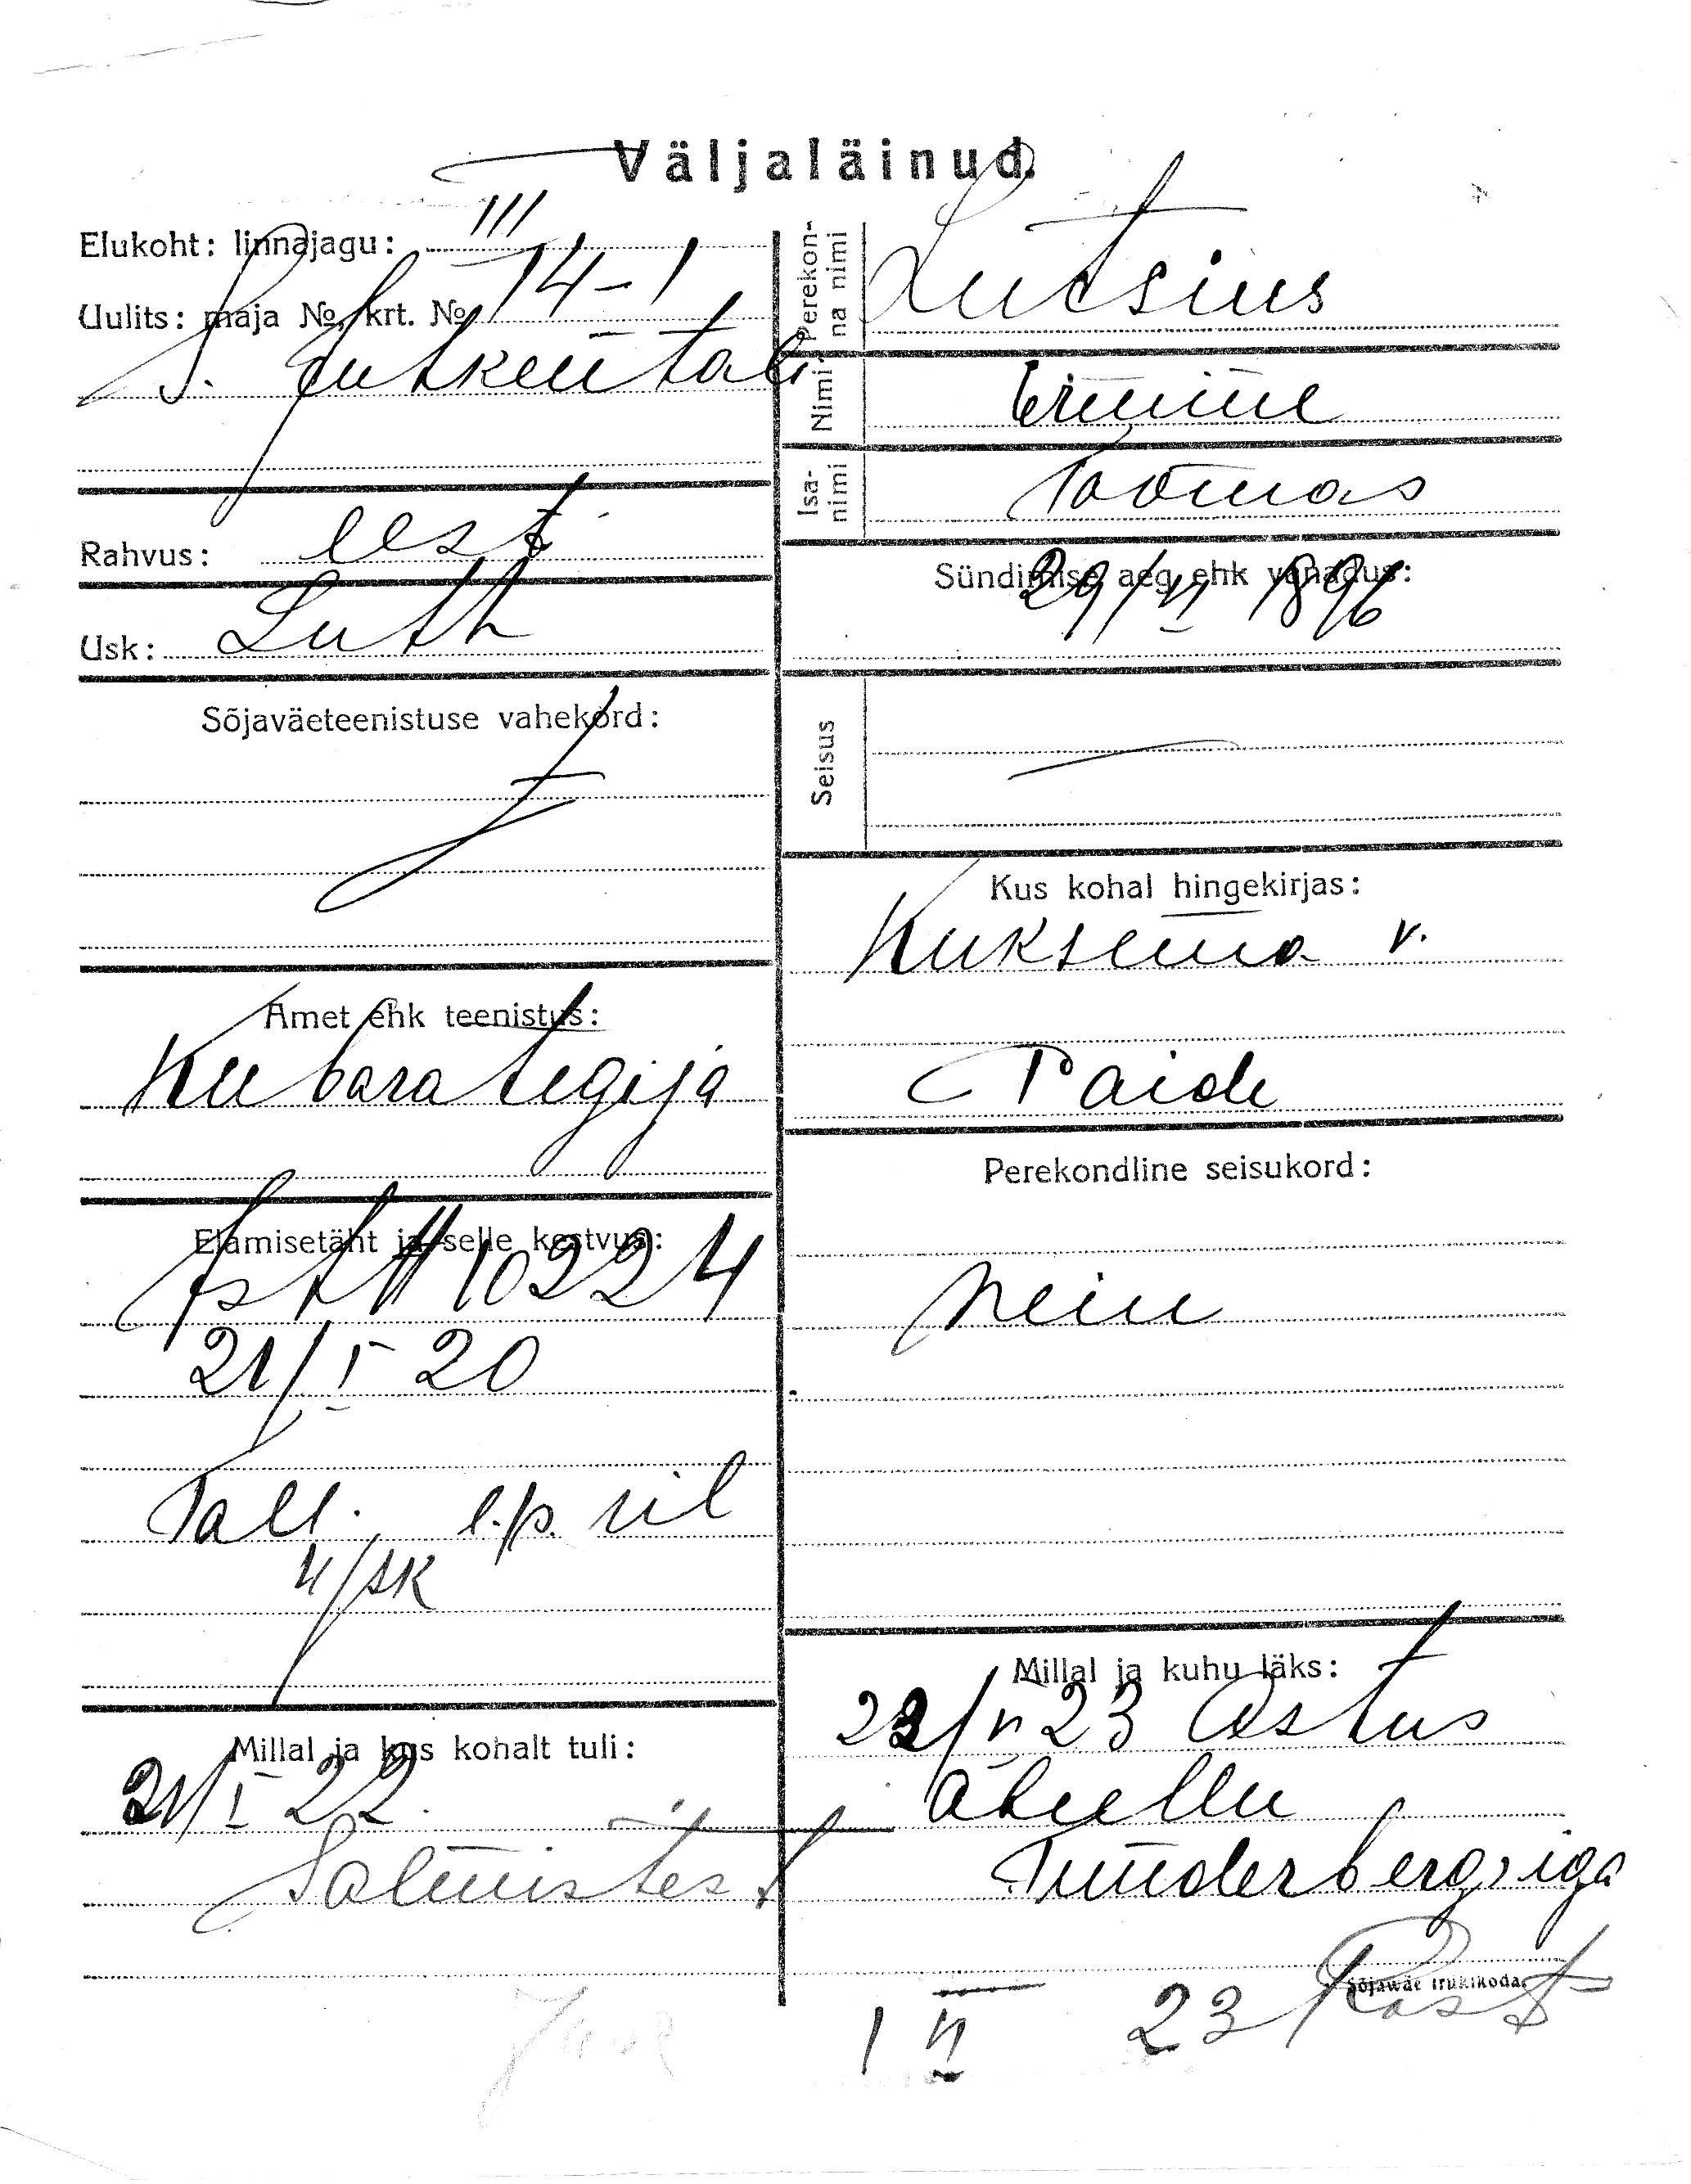 Väljaläinud.
Elukoht: linnajagu: III
Uulits: maja №, krt. № 14-1
Rahvus: eest
Usk: Luth
Sõjaväeteenistuse vahekord:
Amet ehk teenistus:
Kubarategija
Elamisetäht ja selle kestvus:
10224
21/I 20
Tall. l.p. ül
Millal ja kus kohalt tuli:
21/I 22.
Perekon-
na nimi
Lutsius
Nimi
Ermine
Isa-
nimi
Toomas
Sündimise aeg ehk vanadus:
29/VI 1896
Seisus
Kus kohal hingekirjas:
Kuksema v.
Paide
Perekondline seisukord:
Neiu
Millal ja kuhu läks:
23 Astus
abiellu
Tunderberg'iga
Sõjawäe trükikoda.
1 VI 23